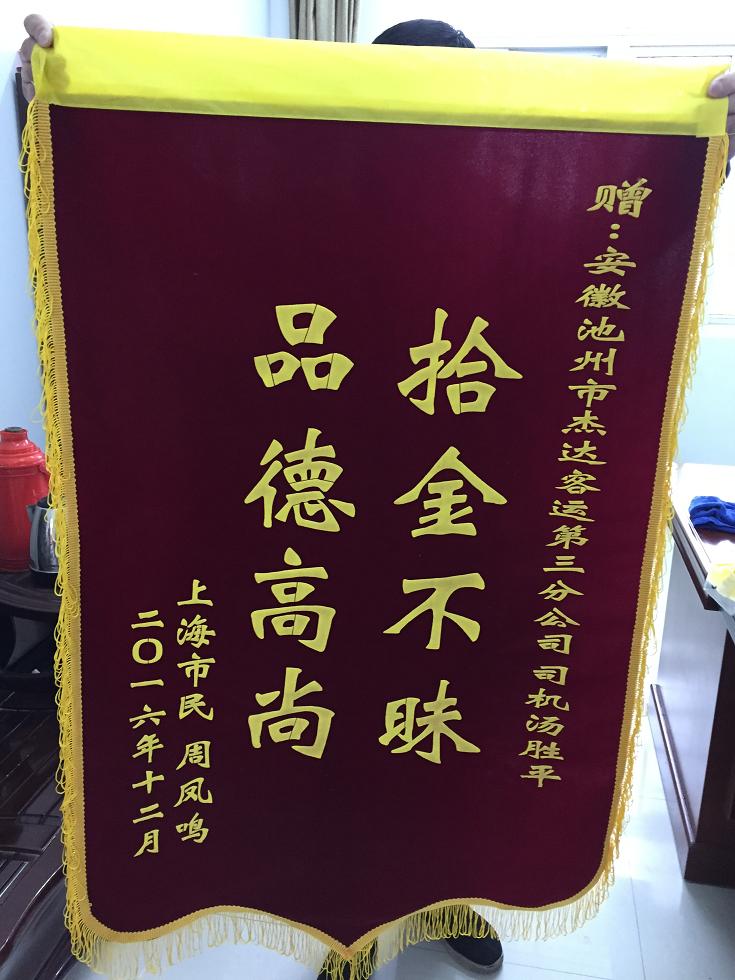 赠：安徽池州市杰达客运第三分公司司机汤胜平
拾金不昧
品德高尚
上海市民周凤鸣
二〇一六年十二月